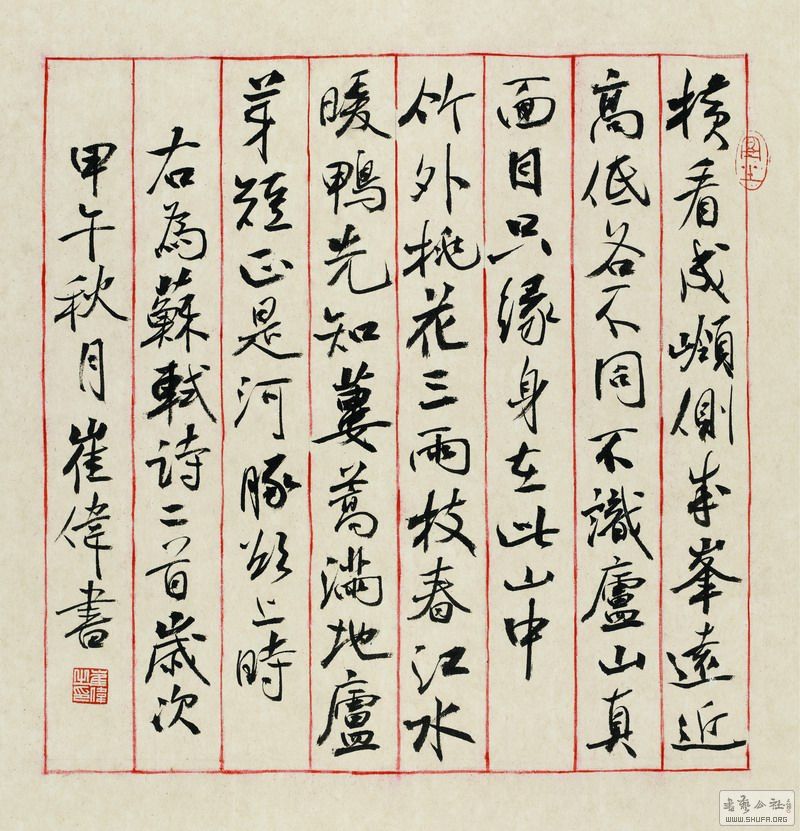 橫看成嶺側成峯遠近
高低各不同不識廬山真
面目只緣身在此山中
竹外桃花三兩枝春江水
暖鴨先知蔞蒿滿地廬
芽短正是河豚欲上時
右為蘇軾詩二首歲次
甲午秋月崔偉書
崔偉之印
書藝公社
WWW.SHUFA.ORG